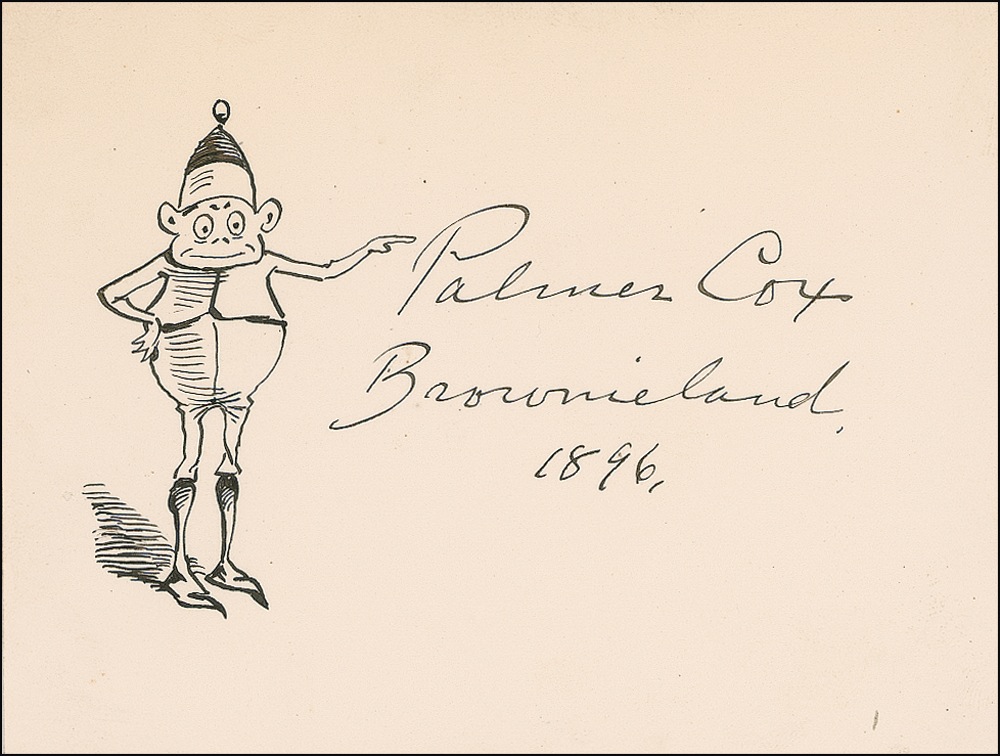 Palmer Cox
Brownieland,
1896,